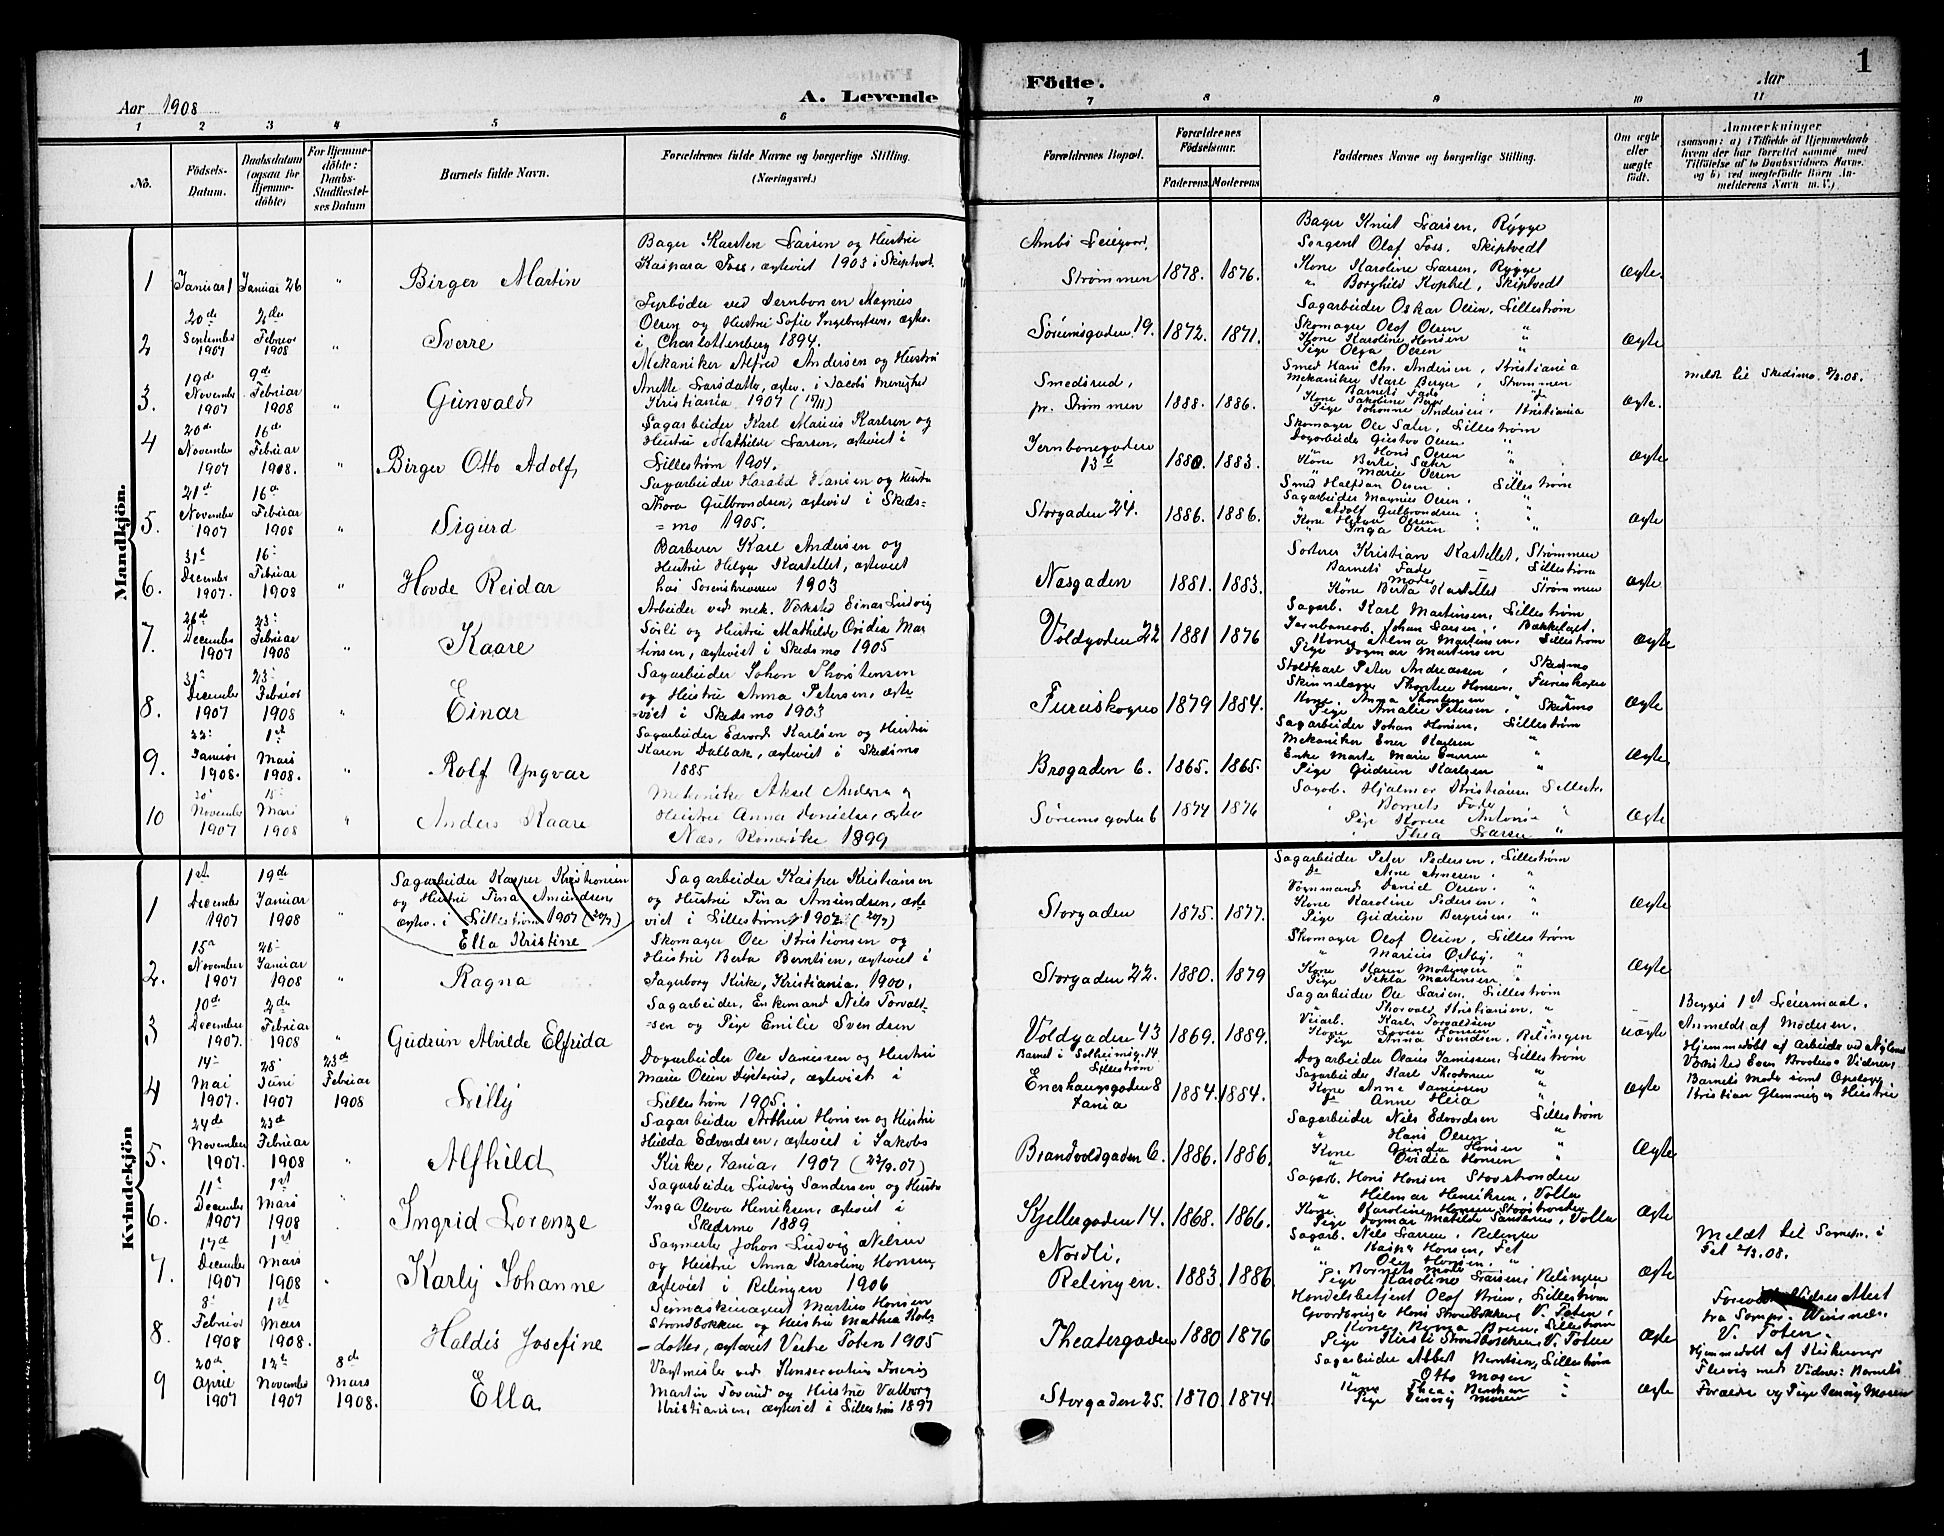 1
Aar 1908
A. Levende
Födte.
Aar
1 2 3 4 5 6 7 8 9 10 11
No.
Födsels-Datum.
Daabsdatum (ogsaa for Hjemmedöbte)
For Hjemmedöbte: Daabs-Stadfestelses Datum
Barnets fulde Navn.
Forældrenes fulde Navne og borgerlige Stilling.
(Næringsvei.)
Forældrenes Bopæl.
Forældrenes Födselsaar.
Faderens. Moderens
Faddernes Navne og borgerlige Stilling.
Om ægte eller uægte födt.
Anmærkninger
(saasom: a) i Tilfælde af Hjemmedaab
hvem der har forrettet samme med
Tilföielse af to Daabsvidners Navne.
og b) ved uægtefödte Barn An-
melderens Navn m. V.)
Mandkjön.
1 Januar 1 Januar 26 " Birger Martin
Bager Karsten Larsen og Hustru
Kaspara Foss, ægteviet 1903 i Skiptvedt.
Strømmen 1878. 1876.
Bager Knut Larsen, Rygge
Olaf Foss. Skiptvedt
Kone Karoline Larsen, Rygge
" Borghild Skiptvedt
Ægte.
2 20de September 1907 2den Februar 1908 " Sverre
Fyrbøder ved Jernbanen Magnus
Olsen og Hustru Sofie Ingebrigtsen, ægtev.
i Charlottenberg 1894.
Sørumsgaden 19. 1872. 1871.
Sagarbeider Oskar Olsen, Lillestrøm
Skomager Olof Olsen "
Kone Karoline Hansen "
Pige Olga Olsen "
Ægte
3. 19de November 1907 9de Februar 1908 " Gunvald
Mekaniker Alfred Andersen og Hustru
Anette Larsdatter, ægtev. i Jacobs Menighed
Kristiania 1907
Smedsrud, pr. Strømmen 1888. 1886.
Smed Hans Chr. Andersen, Kristiania
Mekaniker Karl Berger, Strømmen
Barnets Fader
Kone Jakobine Berger
Pige Johanne Andersen, Kristiania
Ægte.
Meldt til Skedsmo. 2/3.08.
4 20de November 1907 16de Februar 1908. " Birger Otto Adolf
Sagarbeider Karl Marius Karlsen og
Hustru Mathilde Larsen, ægteviet i
Lillestrøm 1904.
Jernbanegaden 13b 1880. 1883.
Skomager Ole Sæter, Lillestrøm
Dagarbeider Gustav Olsen "
" Hans Olsen "
Kone Berte Sæter "
" Marie Olsen "
Ægte
5. 21de November 1907 16de Februar 1908 " Sigurd
Sagarbeider Harald Hansen og Hustru
Thora Gulbrandsen, ægteviet i Skeds-
= mo 1905.
Storgaden 24. 1886. 1886.
Smed Halfdan Olsen. Lillestrøm
Sagarbeider Magnus Olsen. "
" Adolf Gulbrandsen "
Kone Helga Olsen "
" Inga Olsen "
Ægte
6. 31te December 1907. 16de Februar 1908 " Hovde Reidar
Barberer Karl Andersen og
Hustru Helga Kastellet, ægteviet
hos Sorenskriveren 1903
Næsgaden 1881. 1883.
Kristian Kastellet, Strømmen
Barnets Fader Lillestrøm
Moder
Kone Berta Kastellet Strømmen
Ægte
7. 26de December 1907 23de Februar 1908 " Kaare
Arbeider ved mek. Værksted Einar Ludvig
Sørli og Hustru Mathilde Ovidia Mar
tinsen, ægteviet i Skedsmo 1905
Voldgaden 22 1881 1876
Sagarb. Karl Martinsen, Lillestrøm
Jernbanearb. Johan Larsen, Bækkelaget.
Kone Alma Martinsen Lillestrøm
Pige Dagmar Martinsen
Ægte
8. 31te December 1907 23de Februar 1908 " Einar
Sagarbeider Johan Thorstensen
og Hustru Anna Petersen, ægte-
viet i Skedsmo 1903
Furuskogen 1879 1884.
Stoldkarl Peter Andreassen, Skedsmo
Thorsten Hansen, Furuskogen
Kone Anna Thorstensen " "
Pige Amalie Petersen, Skedsmo
Ægte
9. 22de Januar 1908. 1ste Mars 1908. " Rolf Yngvar
Sagarbeider Edvard Karlsen og Hustru
Karen Dalbak, ægteviet i Skedsmo
1885
Brogaden 6. 1865. 1865.
Sagarbeider Johan Hansen, Lillestrøm
Mekaniker Ener Karlsen "
Enke Marte Marie "
Pige Gudrun Karlsen "
Ægte
10 20de November 1907 15de Mars 1908 " Anders Kaare
Mekaniker Aksel Andersen og
Hustru Anna Danielsen, ægtev.
Næs, Romerike 1899
Sørumsgaden 6 1874 1876
Sagarb. Hjalmar Kristiansen Lillestr.
" Barnets Fader
Pige Karen Antonie "
" Thea Larsen "
Ægte
Kvindekjön
1 1ste December 1907 19de Januar 1908 "
Sagarbeider Kasper Kristiansen
og Hustru Tina Amundsen,
ægtev. i Lillestrøm 1907 (20/7)
Ella Kristine
Sagarbeider Kasper Kristiansen
og Hustru Tina Amundsen, ægte
viet i Lillestrøm 1907 (20/7)
Storgaden 1875. 1877.
Sagarbeider Peter Pedersen. Lillestrøm
Do Arne Arnesen. "
Vognmand Daniel Olsen. "
Kone Karoline Pedersen. "
Pige Gudrun Bergersen. "
Ægte
2. 15de November 1907 26de Januar 1908 " Ragna
Skomager Ole Kristiansen og
Hustru Berta Berntsen, ægteviet i
Fagerborg Kirke, Kristiania. 1900.
Storgaden 22. 1880. 1879
Skomager Olof Olsen, Lillestrøm
" Marius Østby. "
Kone Karen Mortensen "
Pige Tekla Martinsen "
Ægte
3 10de December 1907. 2den Februar 1908 " Gudrun Alvilde Elfrida
Sagarbeider, Enkemand Nils Torvald-
sen og Pige Emilie Svendsen
Voldgaden 43 1869. 1889.
Barnet i Solheimsg. 14. Lillestrøm
Sagarbeider Ole Larsen. Lillestrøm
" Thorvald Kristiansen, "
Veiarb. Karl Torvaldsen "
Kone Lovise Hansen "
Pige Anna Svendsen, Relingen
uægte
Begges 1ste Leiermaal.
Anmeldt af Moderen.
4 14de Mai 1907. 28de Juni 1907 23de Februar 1908 Lilly
Dagarbeider Ole Jamissen og Hustru
Marie Olsen ægteviet i
Lillestrøm 1905.
Enerhaugsgaden 8 1884. 1884.
Dagarbeider Olaus Jamissen, Lillestrøm
Sagarbeider Karl Theodorsen "
Kone Anne Jamissen "
Do Anne Heia "
Ægte
Hjemmedøbt af Arbeider ved Nylands
Værksted Even Brodersen Vidner,
Barnets Moder samt Opsynsm.
Kristian Glemmig og Hustru
5. 24de November 1907. 23de Februar 1908 " Alfhild
Sagarbeider Arthur Hansen og Hustru
Hilda Edvardsen, ægteviet i Jakobs
Kirke, 1907 (22/9.07)
Brandvoldgaden 6. 1886. 1886.
Sagarbeider Nils Edvardsen Lillestrøm
" Hans Olsen "
Kone Gunda Hansen "
" Ovidia Hansen "
Ægte
6. 11te December 1907 1ste Mars 1908 " Ingrid Lorenze
Sagarbeider Ludvig Sandersen og Hustru
Inga Olava Henriksen, ægteviet i
Skedsmo 1889
Kjellergaden 14. 1868. 1866.
Sagarb. Hans Hansen Stavstranden
" Hilmar Henriksen, Volla
Kone Karoline Hansen Stavstranden
Pige Dagmar Matilde Sandersen, Volla
Ægte
7. 17de December 1907 1ste Mars 1908 " Karly Johanne
Sagmester Johan Ludvig Nelsen
og Hustru Anna Karoline Hansen,
ægteviet i Relingen 1906
Nordli, Relingen. 1883. 1886
Sagarb. Nils Larsen. Relingen
" Kasper Hansen, Fet
" Ole Hansen, "
Barnets Moder
Pige Karoline Larsen, Relingen
Ægte
Meldt til Sognepr. i
Fet 2/3.08.
8. 8de Februar 1908 1ste Mars 1908. Haldis Josefine
Symaskinagent Martin Hansen
Strandbakken og Hustru Mathea Karls-
-datter, ægteviet Vestre Toten 1905
Theatergaden 1880 1876
Handelsbetjent Olaf Bruen, Lillestrøm
Gaardbruger Hans Strandbakken, V. Toten.
Kone Roma Bruen, Lillestrøm
Pige Kirsti Strandbakken, V. Toten
Ægte
fra Sognepr.
V. Toten.
9 20de April 1907 12te November 1907 8de Mars 1908. Ella
Vagtmester ved
Martin Toverud og Hustru Valborg
Kristiansen, ægteviet i Lillestrøm 1897
Storgaden 25. 1870 1874.
Sagarbeider Albert Berntsen, Lillestrøm
" Otto Mosen "
Kone Thea Berntsen "
Pige Jenny Mosen "
Ægte
Hjemmedøbt af
med Vidner: Barnets
Forældre og Pige Jenny Mosen